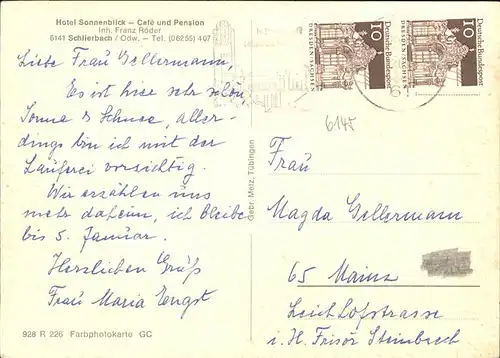 Hotel Sonnenblick – Café und Pension
Inh. Franz Röder
6141 Schlierbach / Odw. – Tel. (06255) 407
Liebe Frau Gellermann,
Es ist hier sehr schön
Sonne & Schnee, aller-
dings bin ich mit der
Lauferei vorsichtig.
Wir erzählen uns
mehr daheim, ich bleibe
bis 5. Januar.
Herzlichen Gruß
Frau Maria Engst
928 R 226 Farbphotokarte GC
Gebr. Metz, Tübingen
10
Deutsche Bundespost
DRESDEN/SACHSEN
10
Deutsche Bundespost
DRESDEN/SACHSEN
6145
Frau
Magda Gellermann
65 Mainz
Leichhofstrasse
i. H. Frisör Steinbrech